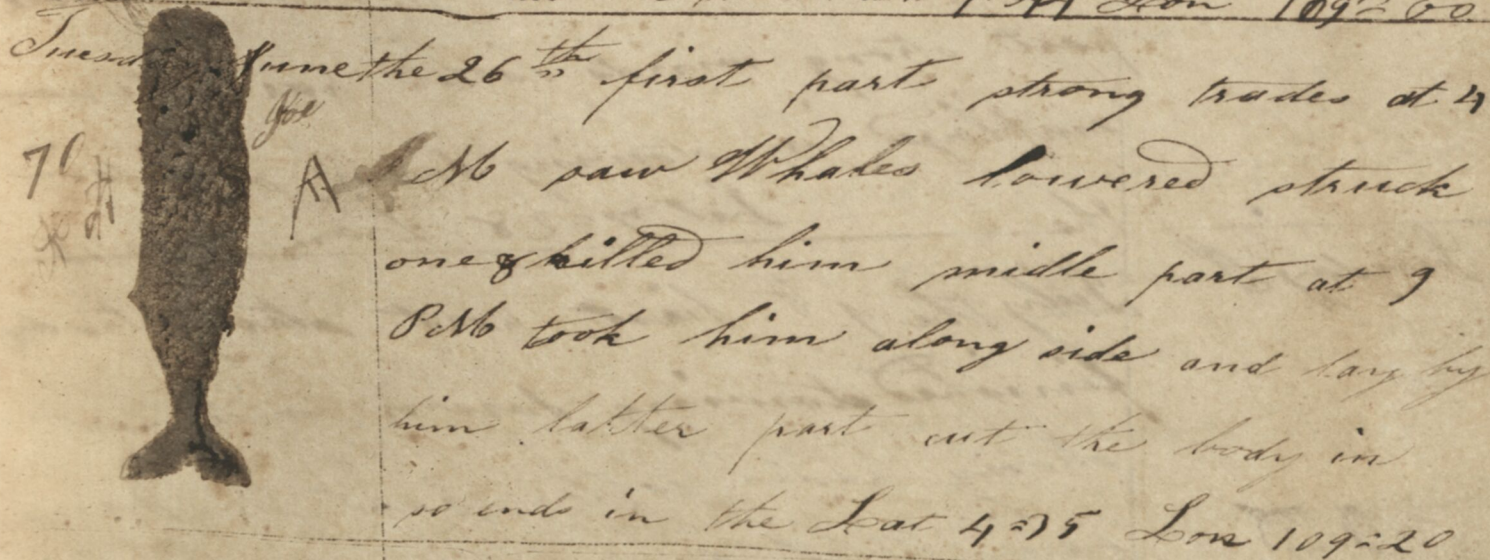 Lon 109=00
Tuesd June the 26th first part strong trades at 4
P M saw Whales lowered struck
one & killed him midle part at 9
P M took him along side and lay by
him latter part cut the body in
so ends in the Lat 4=35 Lon 109=20
70
A